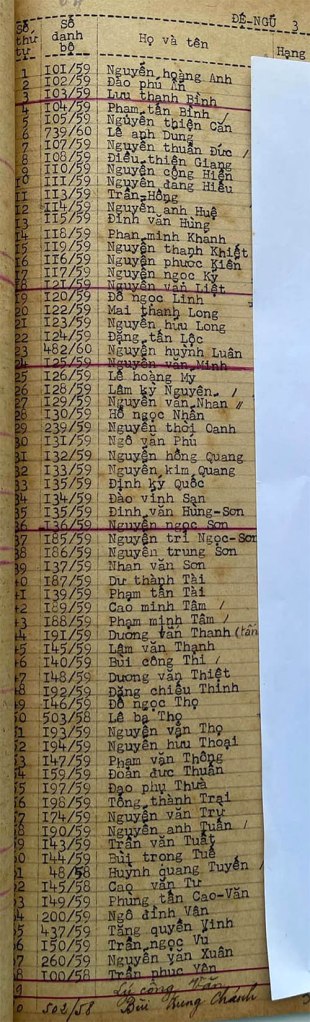 ĐỆ-NGŨ 3
Số thứ tự Số danh bộ Họ và tên Hạng
1 I0I/59 Nguyễn hoàng Anh
2 I02/59 Đào phú An
3 I03/59 Lưu thanh Bình
4 I04/59 Phạm tấn Bình /
5 I05/59 Nguyễn thiện Căn
6 739/60 Lê anh Dung
7 I07/59 Nguyễn thuần Đức /
8 I08/59 Điều thiện Giang
9 II0/59 Nguyễn công Hiển
10 III/59 Nguyễn đăng Hiếu
11 II3/59 Trần Hồng
12 II4/59 Nguyễn anh Huệ
13 II5/59 Đinh văn Hùng
14 II8/59 Phan minh Khánh
15 II9/59 Nguyễn thanh Khiết
16 II6/59 Nguyễn phước Kiển
17 II7/59 Nguyễn ngọc Kỳ
18 I2I/59 Nguyễn văn Liệt
19 I20/59 Đỗ ngọc Linh
20 I22/59 Mai thanh Long
21 I23/59 Nguyễn hữu Long
22 I24/59 Đặng tấn Lộc
23 482/60 Nguyễn huỳnh Luân
24 I25/59 Nguyễn văn Minh
25 I26/59 Lê hoàng Mỹ
26 I28/59 Lâm kỳ Nguyên /
27 I29/59 Nguyễn văn Nhan //
28 I30/59 Hồ ngọc Nhẫn
29 239/59 Nguyễn thới Oanh
30 I3I/59 Ngô văn Phú
31 I32/59 Nguyễn hồng Quang
32 I33/59 Nguyễn kim Quang
33 I35/59 Định kỳ Quốc
34 I34/59 Đào vĩnh San
35 I35/59 Đinh văn Hùng-Sơn
36 I36/59 Nguyễn ngọc Sơn
37 I85/59 Nguyễn tri Ngọc-Sơn
38 I86/59 Nguyễn trung Sơn
39 I37/59 Nhan văn Sơn
40 I87/59 Dư thành Tài
41 I39/59 Phạm tấn Tài
42 I89/59 Cao minh Tâm /
43 I88/59 Phạm minh Tâm /
44 I9I/59 Dương văn Thanh
45 I45/59 Lâm văn Thanh
46 I40/59 Bùi công Thi /
47 I48/59 Dương văn Thiệt
48 I92/59 Đặng chiêu Thinh
49 I46/59 Đỗ ngọc Thọ
50 503/58 Lê bá Thọ
51 I93/59 Nguyễn văn Thọ
52 I94/59 Nguyễn hưu Thoại
53 I47/59 Phạm văn Thông
54 I59/59 Đoàn đức Thuần
55 I97/59 Đạo phụ Thuà
56 I98/59 Tống thành Trai
57 I74/59 Nguyễn văn Trự
58 I90/59 Nguyễn anh Tuấn /
59 I43/59 Trần văn Tuất
60 I44/59 Bùi trọng Tuế
61 48/58 Huỳnh quang Tuyến /
62 I45/58 Cao văn Tư
63 I49/59 Phùng tấn Cao-Văn
64 200/59 Ngô đình Vân
65 437/59 Tăng quyền Vinh
66 I50/59 Trần ngọc Vũ
67 260/59 Nguyễn văn Xuân
68 I00/58 Trần phuc Vân
Lý công Văn
502/58 Bùi Trung Chánh